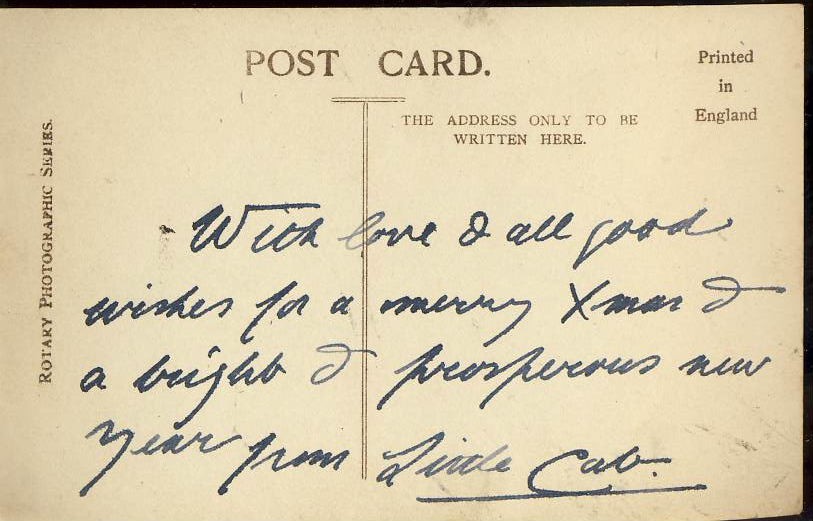 POST CARD.
Printed
in
England
THE ADDRESS ONLY TO BE
WRITTEN HERE.
ROTARY PHOTOGRAPHIC SERIES.
With love & all good
wishes for a merry Xmas &
a bright & prosperous new
year from Little Cab.